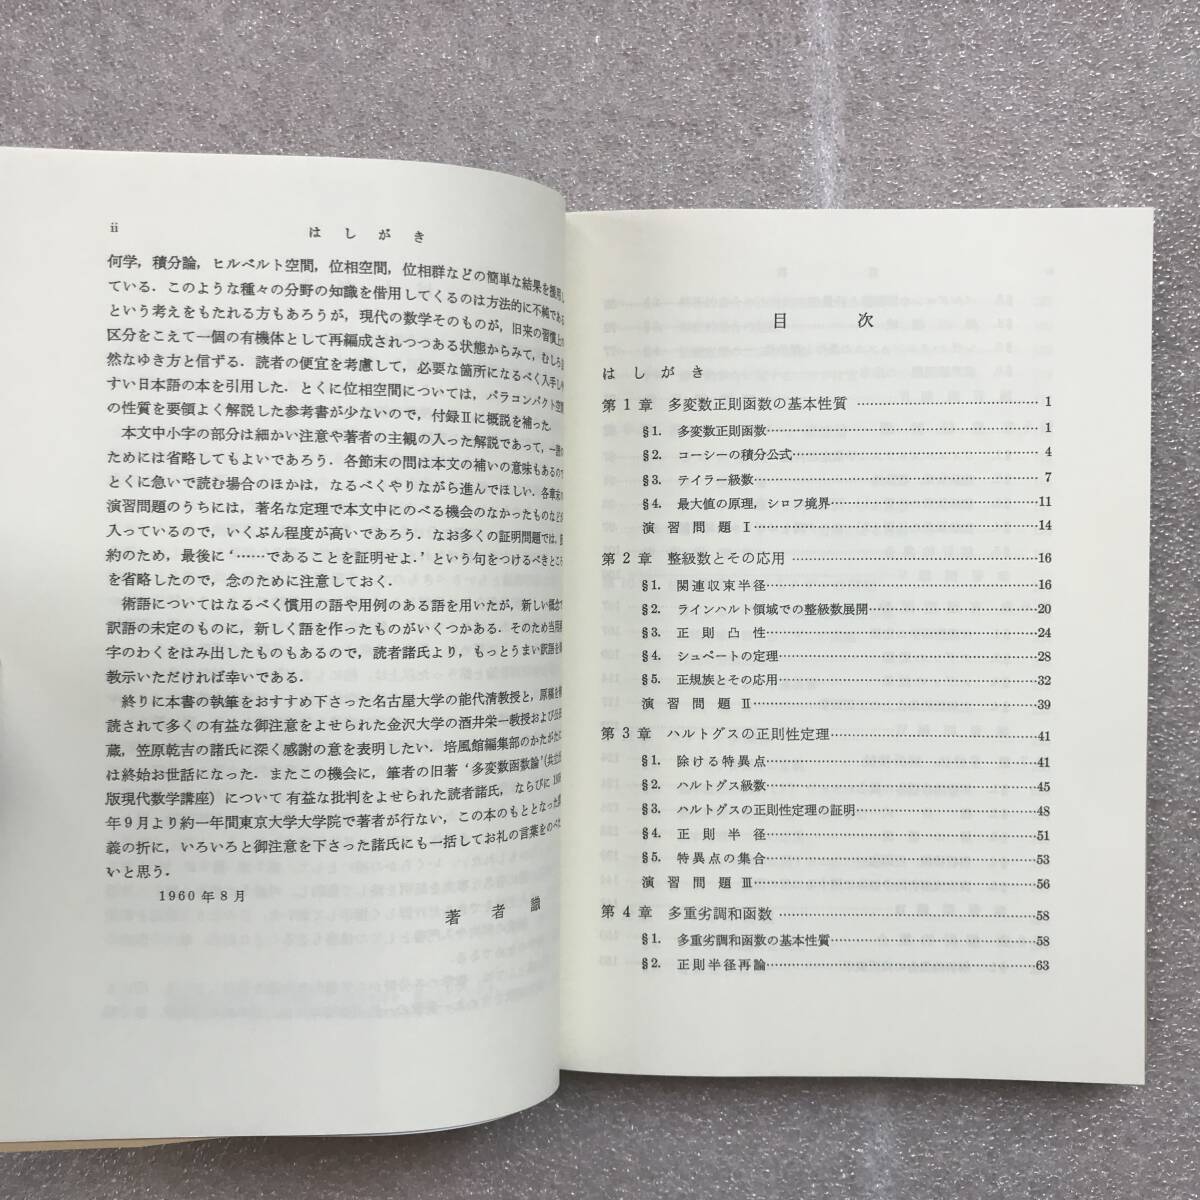 ii
はしがき
何学，積分論，ヒルベルト空間，位相空間，位相群などの簡単な結果を援用し
ている．このような種々の分野の知識を借用してくるのは方法的に不純である
という考えをもたれる方もあろうが，現代の数学そのものが，旧来の習慣上の
区分をこえて一個の有機体として再編成されつつある状態からみて，むしろ
然なゆき方と信ずる．読者の便宜を考慮して，必要な箇所になるべく入手し
すい日本語の本を引用した．とくに位相空間については，パラコンパクト空間
の性質を要領よく解説した参考書が少ないので，付録Ⅱに概説を補った．
本文中小字の部分は細かい注意や著者の主観の入った解説であって，一
ためには省略してもよいであろう．各節末の問は本文の補いの意味もあるので
とくに急いで読む場合のほかは，なるべくやりながら進んでほしい．各章末
演習問題のうちには，著名な定理で本文中にのべる機会のなかったものなど
入っているので，いくぶん程度が高いであろう．なお多くの証明問題では，
約のため，最後に‘……であることを証明せよ．’という句をつけるべきところ
を省略したので，念のために注意しておく．
術語についてはなるべく慣用の語や用例のある語を用いたが，新しい概念
訳語の未定のものに，新しく語を作ったものがいくつかある．そのため当用
字のわくをはみ出したものもあるので，読者諸氏より，もっとうまい訳語を
教示いただければ幸いである．
終りに本書の執筆をおすすめ下さった名古屋大学の能代清教授と，原稿を
読されて多くの有益な御注意をよせられた金沢大学の酒井栄一教授および
蔵，笠原乾吉の諸氏に深く感謝の意を表明したい．培風館編集部のかたがたに
は終始お世話になった．またこの機会に，筆者の旧著‘多変数函数論’（共立
版現代数学講座）について有益な批判をよせられた読者諸氏，ならびに
年9月より約一年間東京大学大学院で著者が行ない，この本のもととなった
義の折に，いろいろと御注意を下さった諸氏にも一括してお礼の言葉をのべた
いと思う．
1960年8月
著者識
目次
はしがき
第1章 多変数正則函数の基本性質……………………………1
§1. 多変数正則函数……………………………1
§2. コーシーの積分公式……………………………4
§3. テイラー級数……………………………7
§4. 最大値の原理，シロフ境界……………………………11
演習問題Ⅰ……………………………14
第2章 整級数とその応用……………………………16
§1. 関連収束半径……………………………16
§2. ラインハルト領域での整級数展開……………………………20
§3. 正則凸性……………………………24
§4. シュペートの定理……………………………28
§5. 正規族とその応用……………………………32
演習問題Ⅱ……………………………39
第3章 ハルトグスの正則性定理……………………………41
§1. 除ける特異点……………………………41
§2. ハルトグス級数……………………………45
§3. ハルトグスの正則性定理の証明……………………………48
§4. 正則半径……………………………51
§5. 特異点の集合……………………………53
演習問題Ⅲ……………………………56
第4章 多重劣調和函数……………………………58
§1. 多重劣調和函数の基本性質……………………………58
§2. 正則半径再論……………………………63